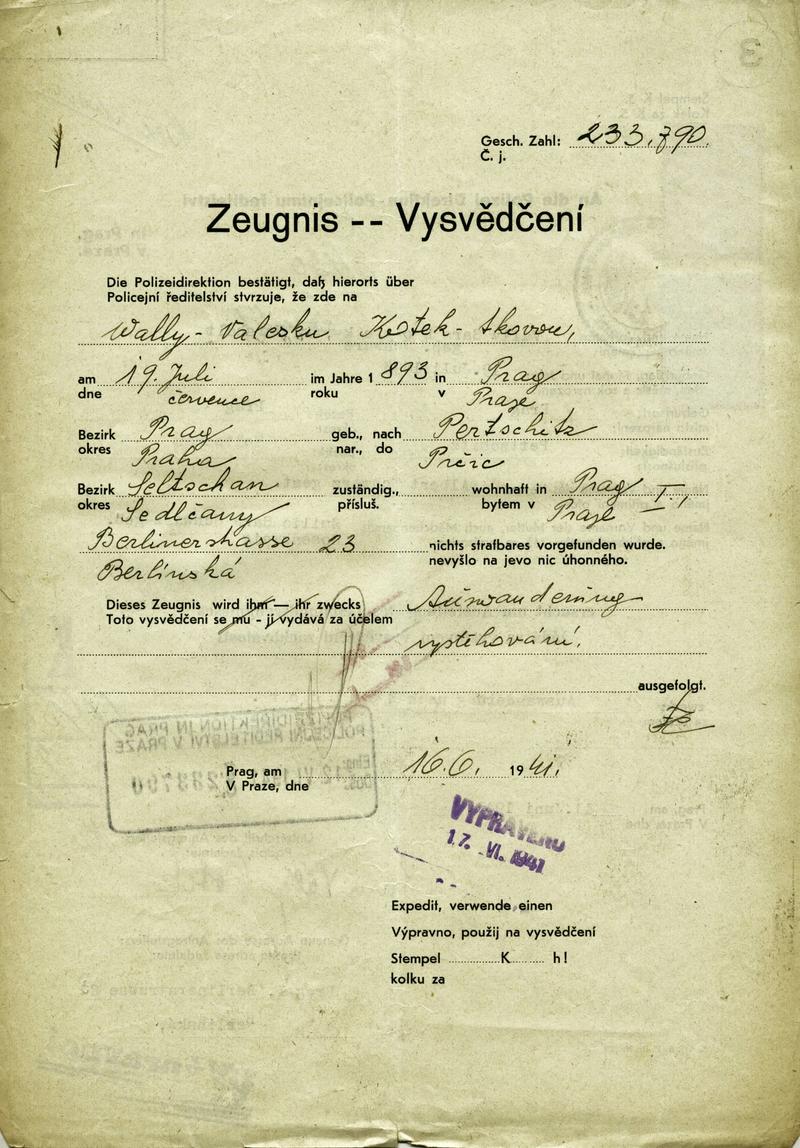 Gesch. Zahl: 233.790.
Č. j.
Zeugnis -- Vysvědčení
Die Polizeidirektion bestätigt, daß hierorts über
Policejní ředitelství stvrzuje, že zde na
Wally - Valesku Kotek - tkovou,
am 19. Juli im Jahre 1 893 in Prag
dne července roku v Praze
Bezirk Prag geb., nach Pertschitz
okres Praha nar., do Prčic
Bezirk Seltschan zuständig., wohnhaft in Prag I.,
okres Sedlčany přísluš. bytem v Praze
Berlinerstrasse 23 nichts strafbares vorgefunden wurde.
Berlínská nevyšlo na jevo nic úhonného.
Dieses Zeugnis wird ihm — ihr zwecks Auswanderung
Toto vysvědčení se mu - jí vydává za účelem
vystěhování,
ausgefolgt.
POLIZEIDIREKTION IN PRAG
POLICEJNÍ ŘEDITELSTVÍ V PRAZE
Prag, am 16.6. 19 41.
V Praze, dne
VYPRAVENO
17. VI. 1941
Expedit, verwende einen
Výpravno, použij na vysvědčení
Stempel K h!
kolku za